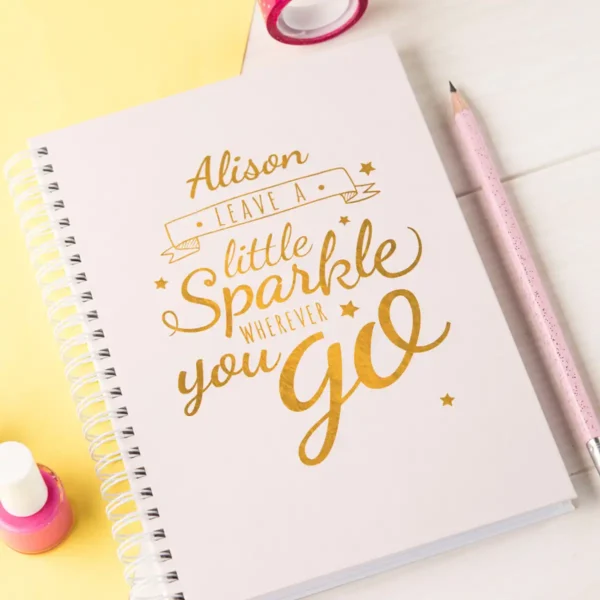 Alison
• LEAVE A •
little
Sparkle
WHEREVER
you go